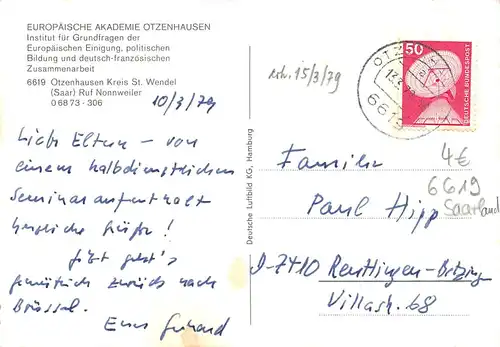 EUROPÄISCHE AKADEMIE OTZENHAUSEN
Institut für Grundfragen der
Europäischen Einigung, politischen
Bildung und deutsch-französischen
Zusammenarbeit
6619 Otzenhausen Kreis St. Wendel
(Saar) Ruf Nonnweiler
0 68 73 - 306
10/3/79
Liebe Eltern - von
einem halbdienstlichen
Seminaraufenthalt
herzliche Grüße!
Jetzt geht's
gemütlich zurück nach
Brüssel.
Euer Gerhard
Deutsche Luftbild KG, Hamburg
15/3/79
50
DEUTSCHE BUNDESPOST
6619
4€
6619
Saarland
Familie
Paul Hipp
D-7410 Reutlingen-Betzing
Villastr. 68